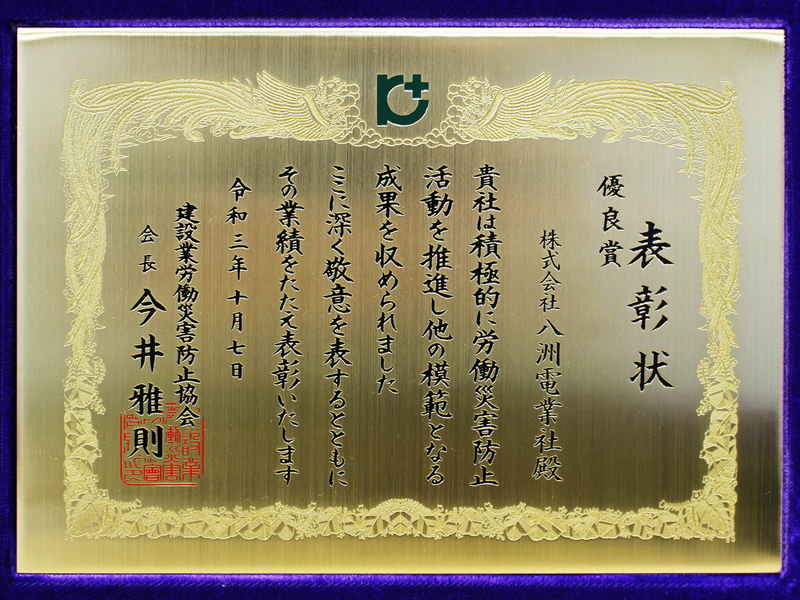 表彰状
優良賞
株式会社 八洲電業社殿
貴社は積極的に労働災害防止
活動を推進し他の模範となる
成果を収められました
ここに深く敬意を表するとともに
その業績をたたえ表彰いたします
令和三年十月七日
建設業労働災害防止協会
会長 今井雅則